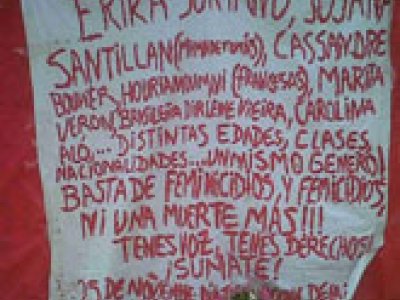 ERIKA SORIANO, SUSANA
SANTILLAN (MAMA DE TOMÁS), CASSANDRE
BOUVIER, HOURIA MOUMNI (FRANCESAS), MARITA
VERON, BRASILEÑA DIRLENE VIEIRA, CAROLINA
ALÓ,... DISTINTAS EDADES, CLASES,
NACIONALIDADES...UN MISMO GENERO!
BASTA DE FEMINICIDIOS, Y FEMICIDIOS,
NI UNA MUERTE MÁS!!!
TENES VOZ, TENES DERECHOS!
¡SUMATE!
25 DE NOVIEMBRE